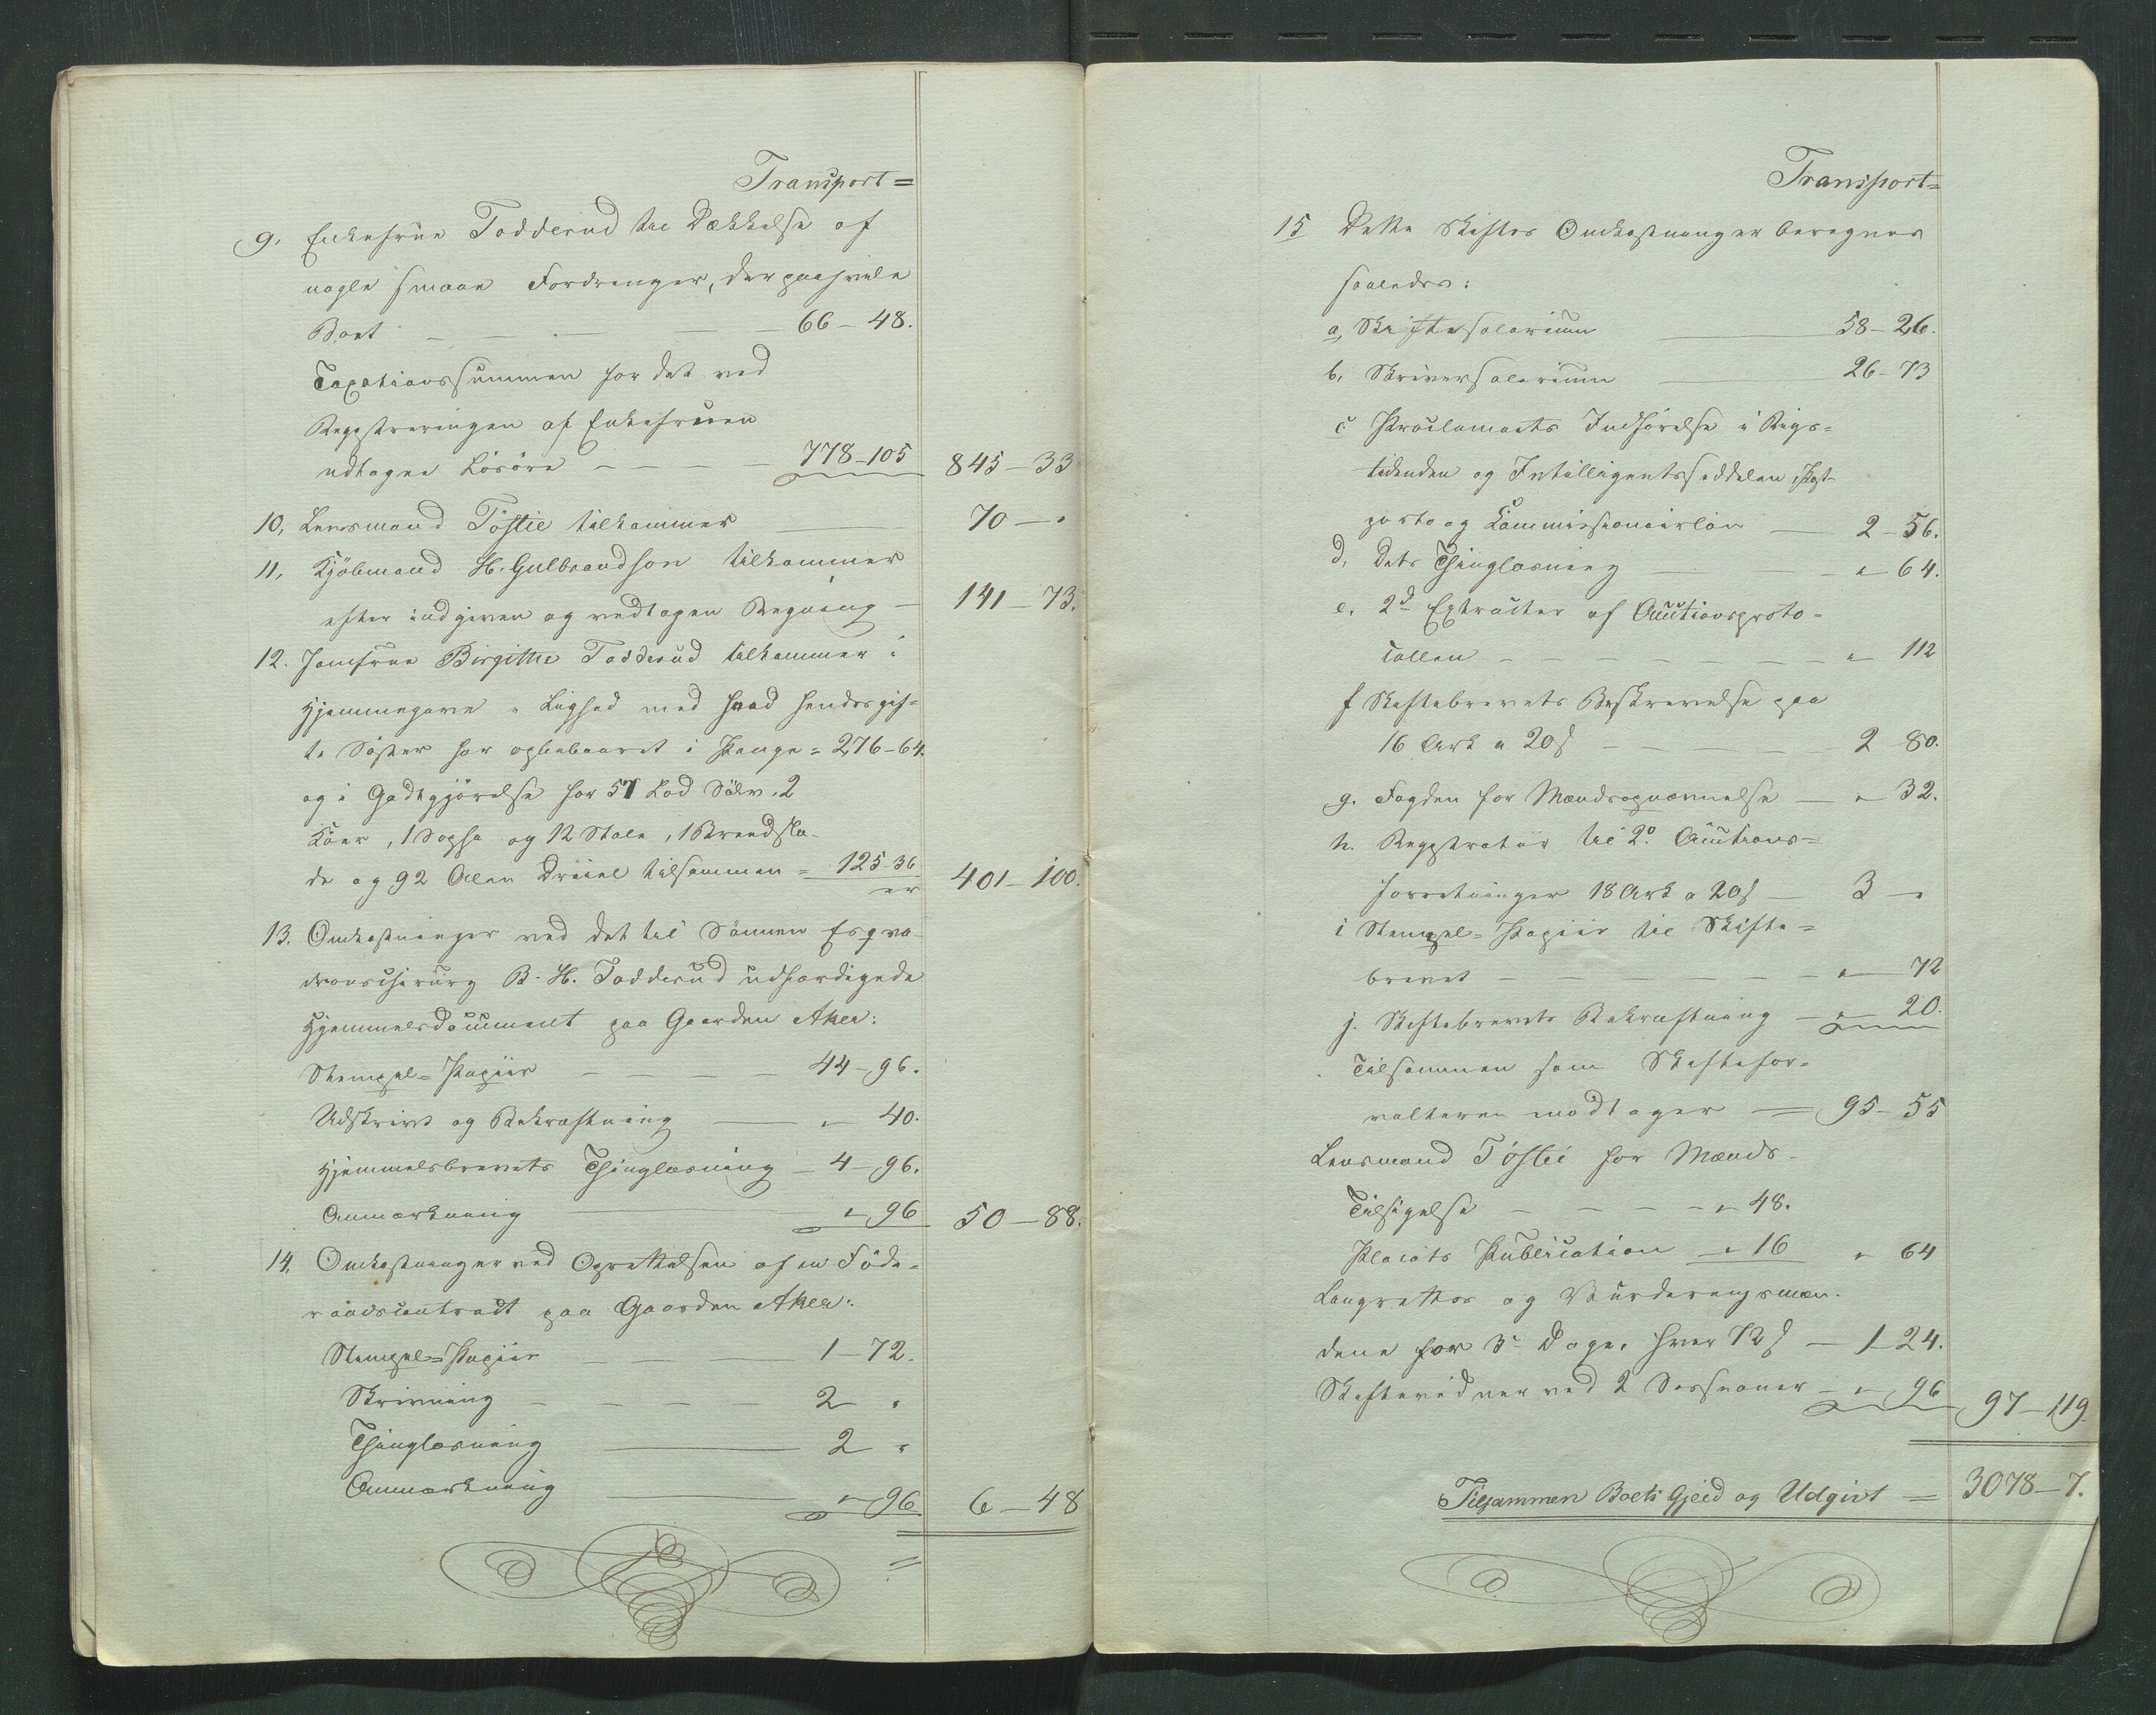 Transport =
9, Enkefrue Todderud til Dækkelse af
nogle smaae Fordringer, der paahvile
Boet — — — 66 – 48.
Taxationssummen for det ved
Registreringen af Enkefruen
udtagne Løsøre — — — 778 – 105 845 – 33
10, Lensmand Töstie tilkommer — 70 – "
11, Kjöbmand H. Gulbrandson tilkommer
efter indgiven og vedtagen Regning — 141 – 73.
12. Jomfrue Birgithe Todderud tilkommer i
Hjemmegave i Lighed med hvad hendes gif-
te Söster har oppebaaret i Penge = 276 – 64.
og i Godtgjörelse for 57 Lod Sölv, 2
Köer, 1 Sopha og 12 Stole, 1 Bredsla-
de og 92 Alen Dreiel tilsammen = 125 – 36
er 401 – 100.
13. Omkostninger ved det til Sönnen Esqva-
dronschirurg B. H. Todderud udfærdigede
Hjemmelsdocument paa Gaarden Aker:
Stempel = Papiir — — — 44 – 96.
Udskrivt og Bekræftning — " 40.
Hjemmelsbrevets Thinglæsning — 4 – 96.
Anmærkning — " – 96 50 – 88.
14, Omkostninger ved Oprettelsen af en Föde-
raadscontract paa Gaarden Aker:
Stempel = Papiir — — 1 – 72.
Skrivning — — — — 2 "
Thinglæsning — 2 "
Anmærkning — " – 96 6 – 48
Transport =
15 Dette Skiftes Omkostninger beregnes
saaledes:
a, Skiftesalarium — 58 – 26.
b, Skriversalarium — 26 – 73
c Proclamaets Indförelse i Rigs =
tidenden og Intelligentssedlen, Post-
porto og Commissionairlön — 2 – 56.
d, Dets Thinglæsning — — " 64.
e, 2d Extracter af Auctionsproto-
collen — — — — — " 112
f Skiftebrevets Beskrivelse paa
16 Ark a 20 ß — — — 2 80.
g. Fogden for Mændsopnævnelse — " 32.
h. Registratur til 2o Auctions =
forretninger 18 Ark a 20 ß — 3 – "
i Stempel = Papiir til Skifte =
brevet — — — — " 72
j. Skiftebrevets Bekræftning — " 20.
Tilsammen som Skiftefor-
valteren modtager = 95 – 55
Lensmand Töstie for Mænds-
Tilsigelse — — — " 48.
Placats Publication — " 16 " 64
Laugrettes og Vurderingsmæn-
dene for 3 Dage, hver 72 ß — 1 24.
Skiftevidner ved 2 Sessioner — " 96 97 – 119.
Tilsammen Boets Gjeld og Udgivt = 3078 – 7.